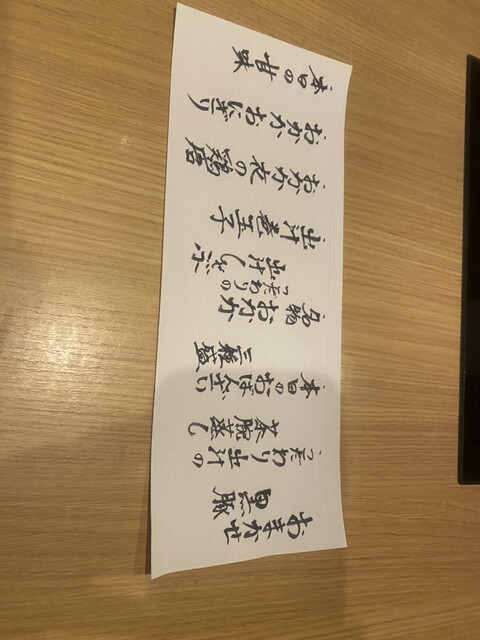 おまかせ
黒豚
こだわり出汁の
茶腕蒸し
本日のおばんざい
三種盛
名物 おかか
こだわりの
出汁しゃぶ
出汁巻玉子
おかか衣の鶏唐
おかかおにぎり
本日の甘味